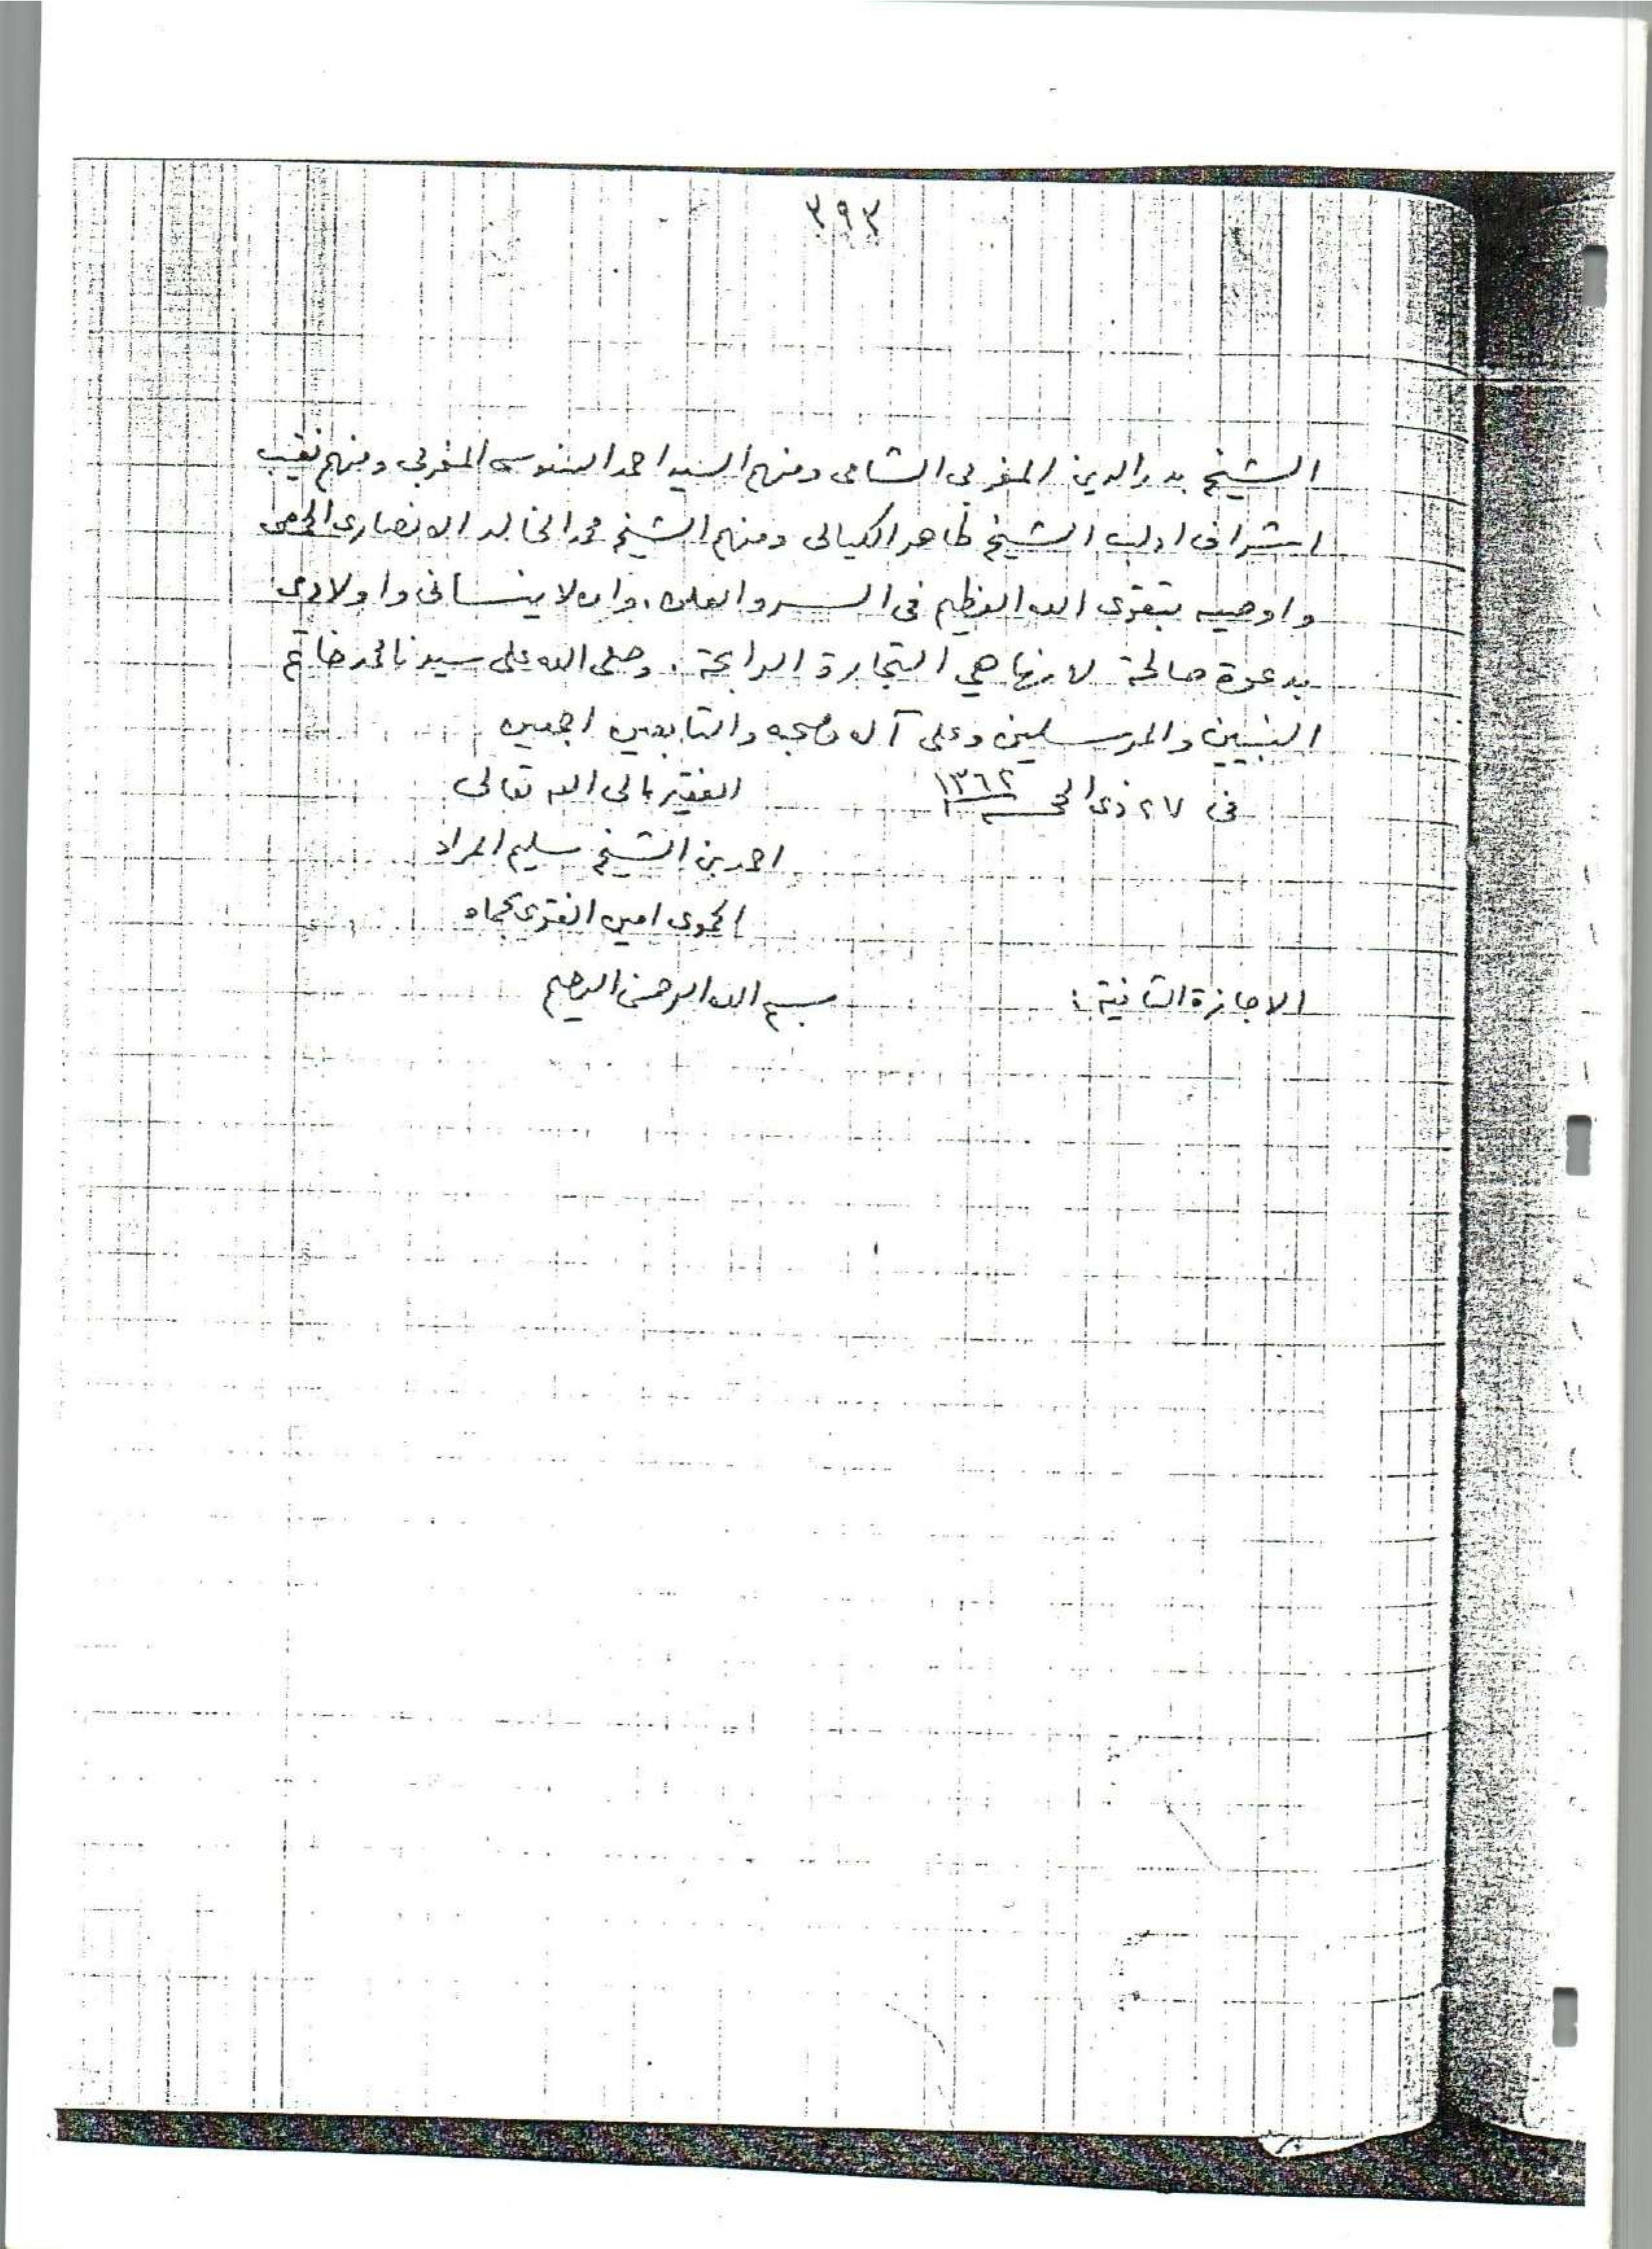 ٣٩٣
الشيخ بدر الدين المغربى الشامى ومنهم السيد احمد السنوسى المغربى ومنهم نقيب
اشراف ادلب الشيخ طاهر الكيالى ومنهم الشيخ محمد الخالد الانصارى الحمصى
واوصيه بتقوى الله العظيم فى السر والعلن. وان لا ينسانى واولادى
بدعوة صالحة لانها هي التجارة الرابحة. وصلى الله على سيدنا محمد خاتم
النبيين والمرسلين وعلى آله وصحبه والتابعين اجمعين
فى ٢٧ ذى الحجة سنة ١٣٦٢ الفقير الى الله تعالى
احمد بن الشيخ سليم المراد
الحموى امين الفتوى بحماه
الاجازة الثانية: بسم الله الرحمن الرحيم